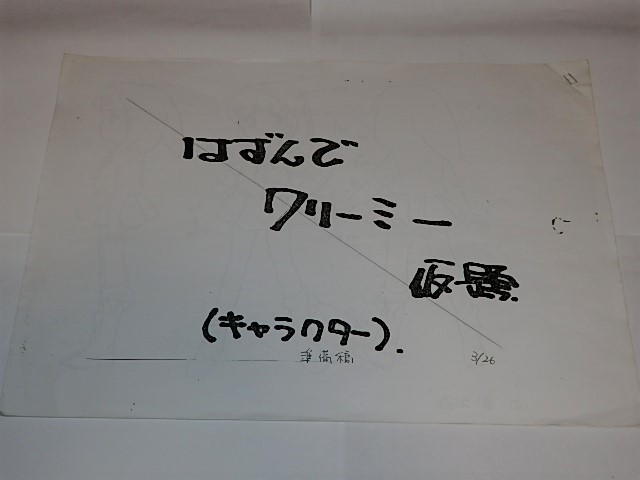 はずんで
クリーミー
仮題.
(キャラクター).
準備稿 3/26
11